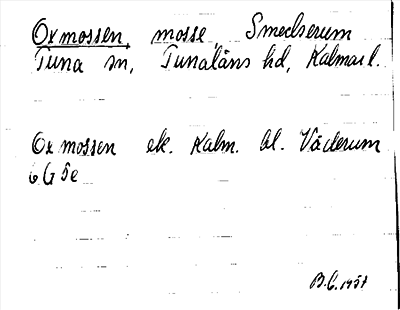 Oxmossen, mosse, Smedserum
Tuna sn, Tunaläns hd, Kalmar l.
Oxmossen ek. Kalm. bl. Väderum
6 G 5e
B.C. 1957